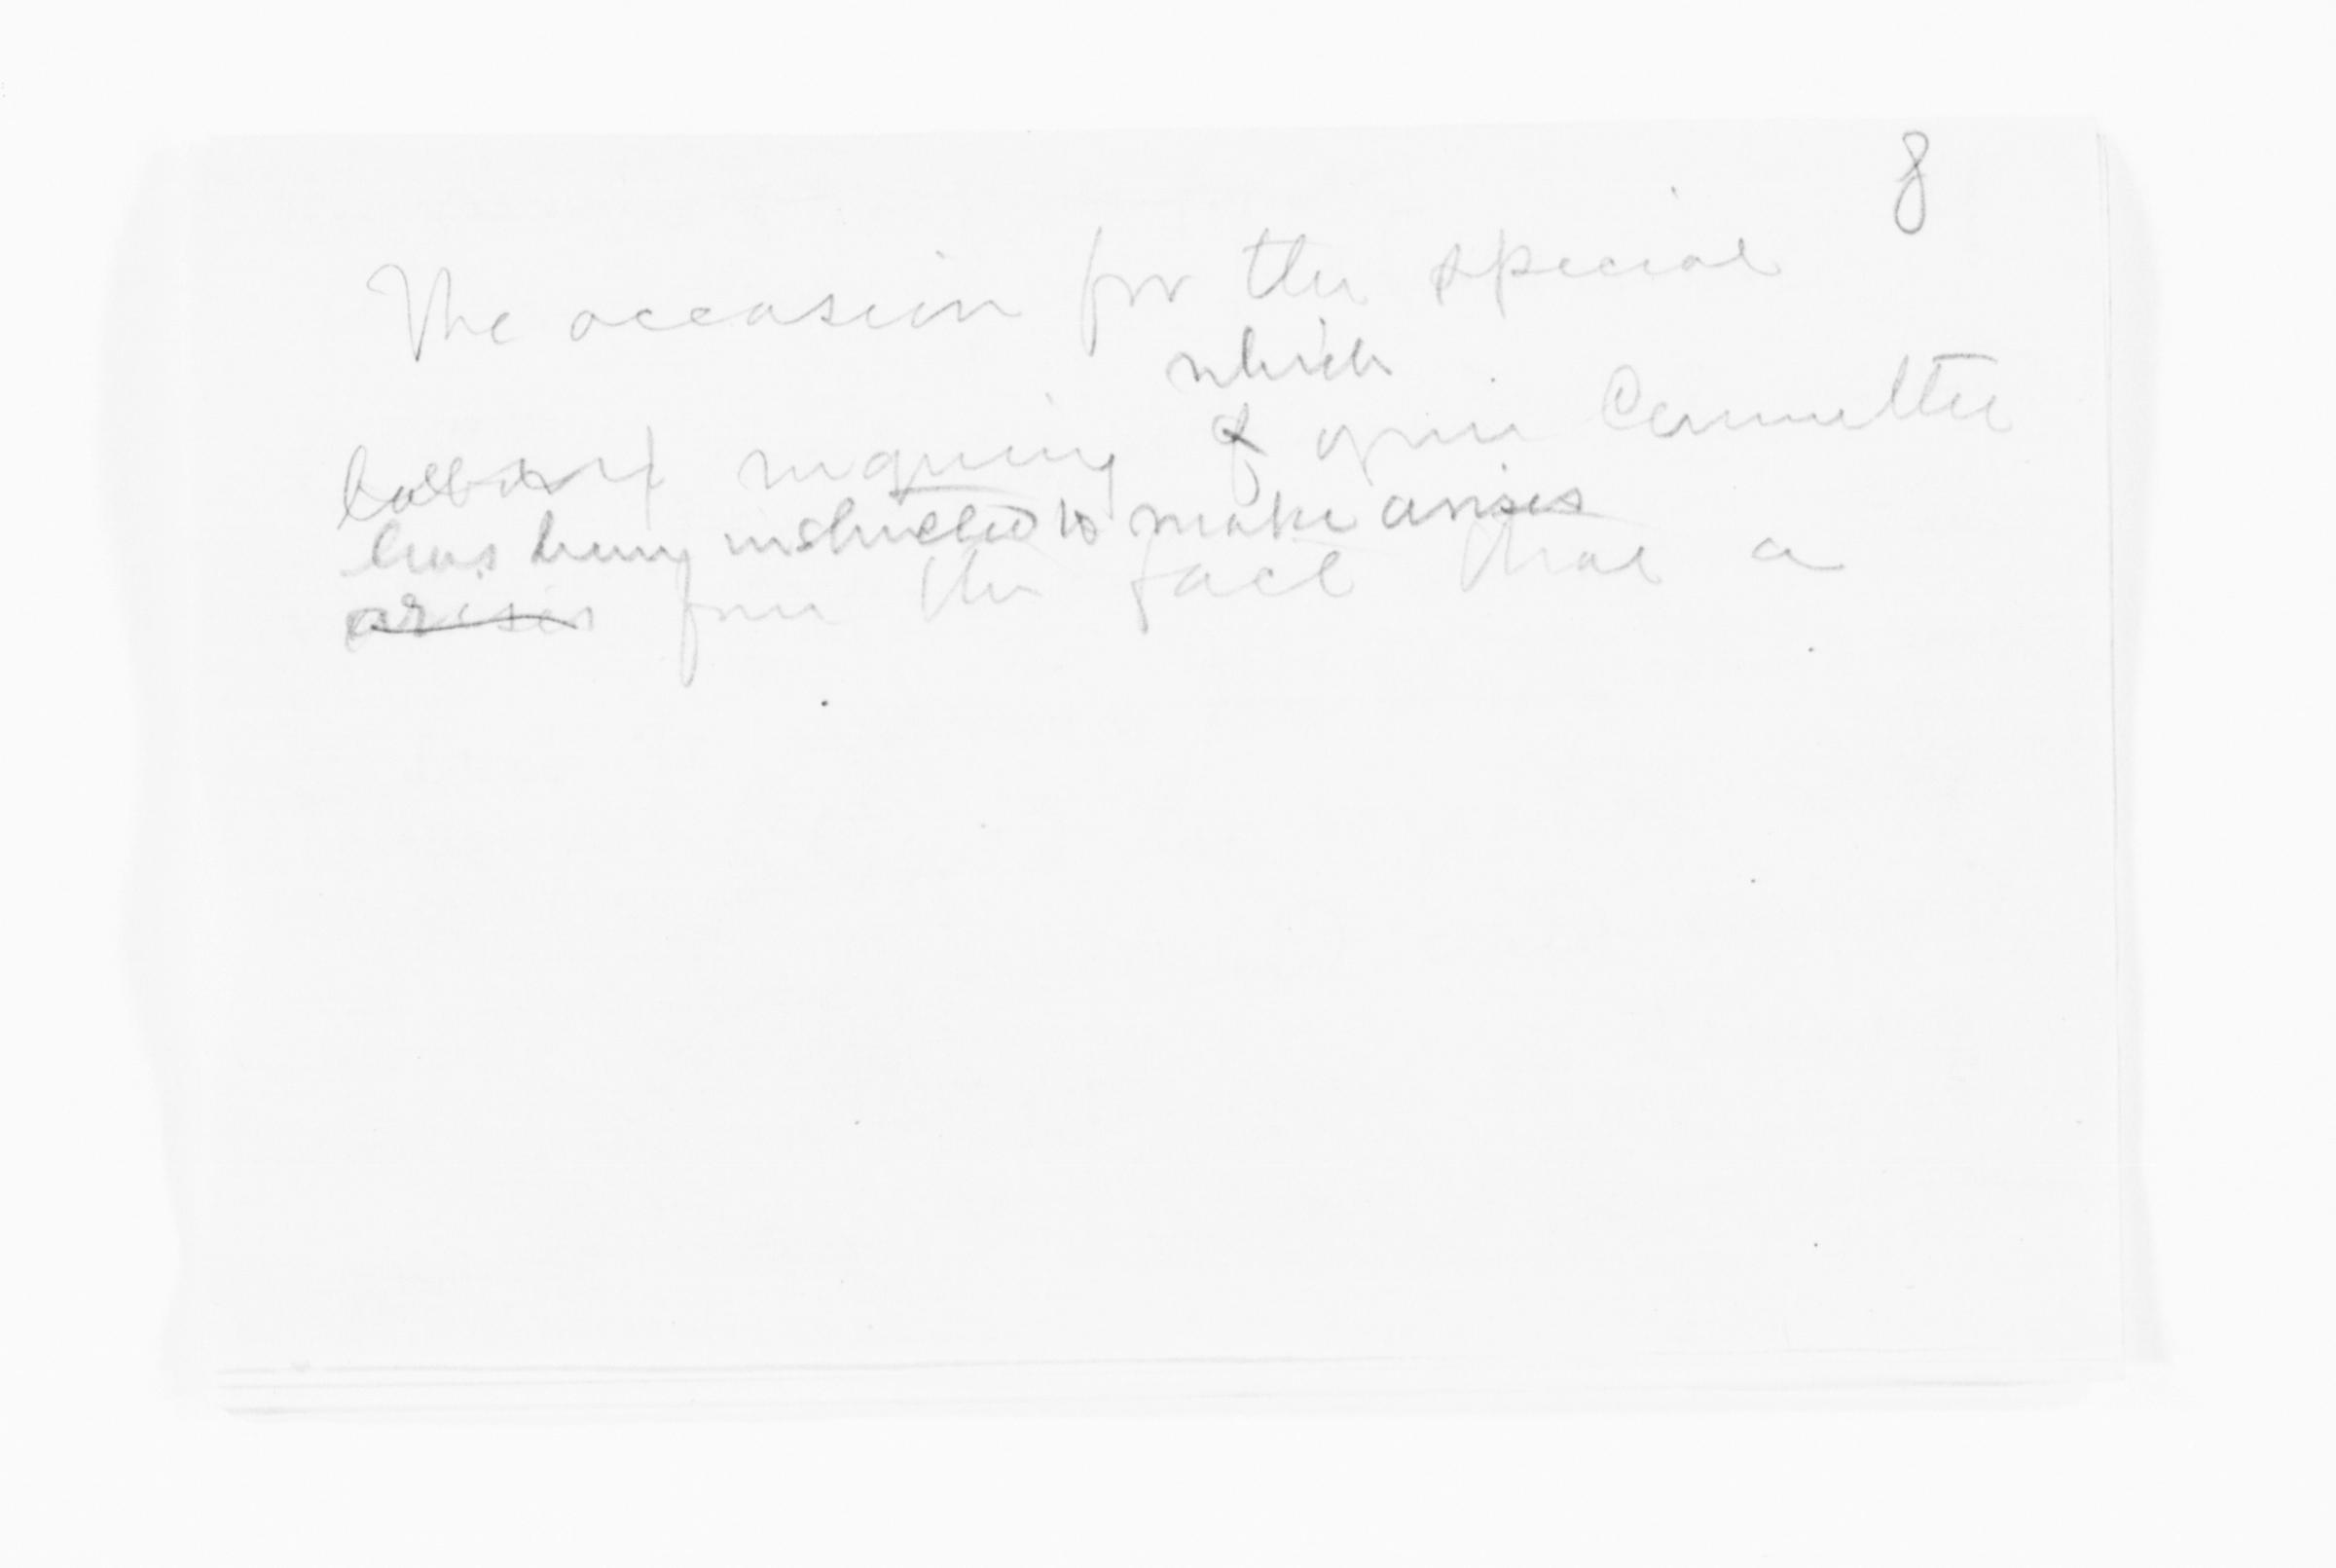 8
The occasion for the special
which
inquiry of your Committee
has been instructed to make arises
arises from the fact that a